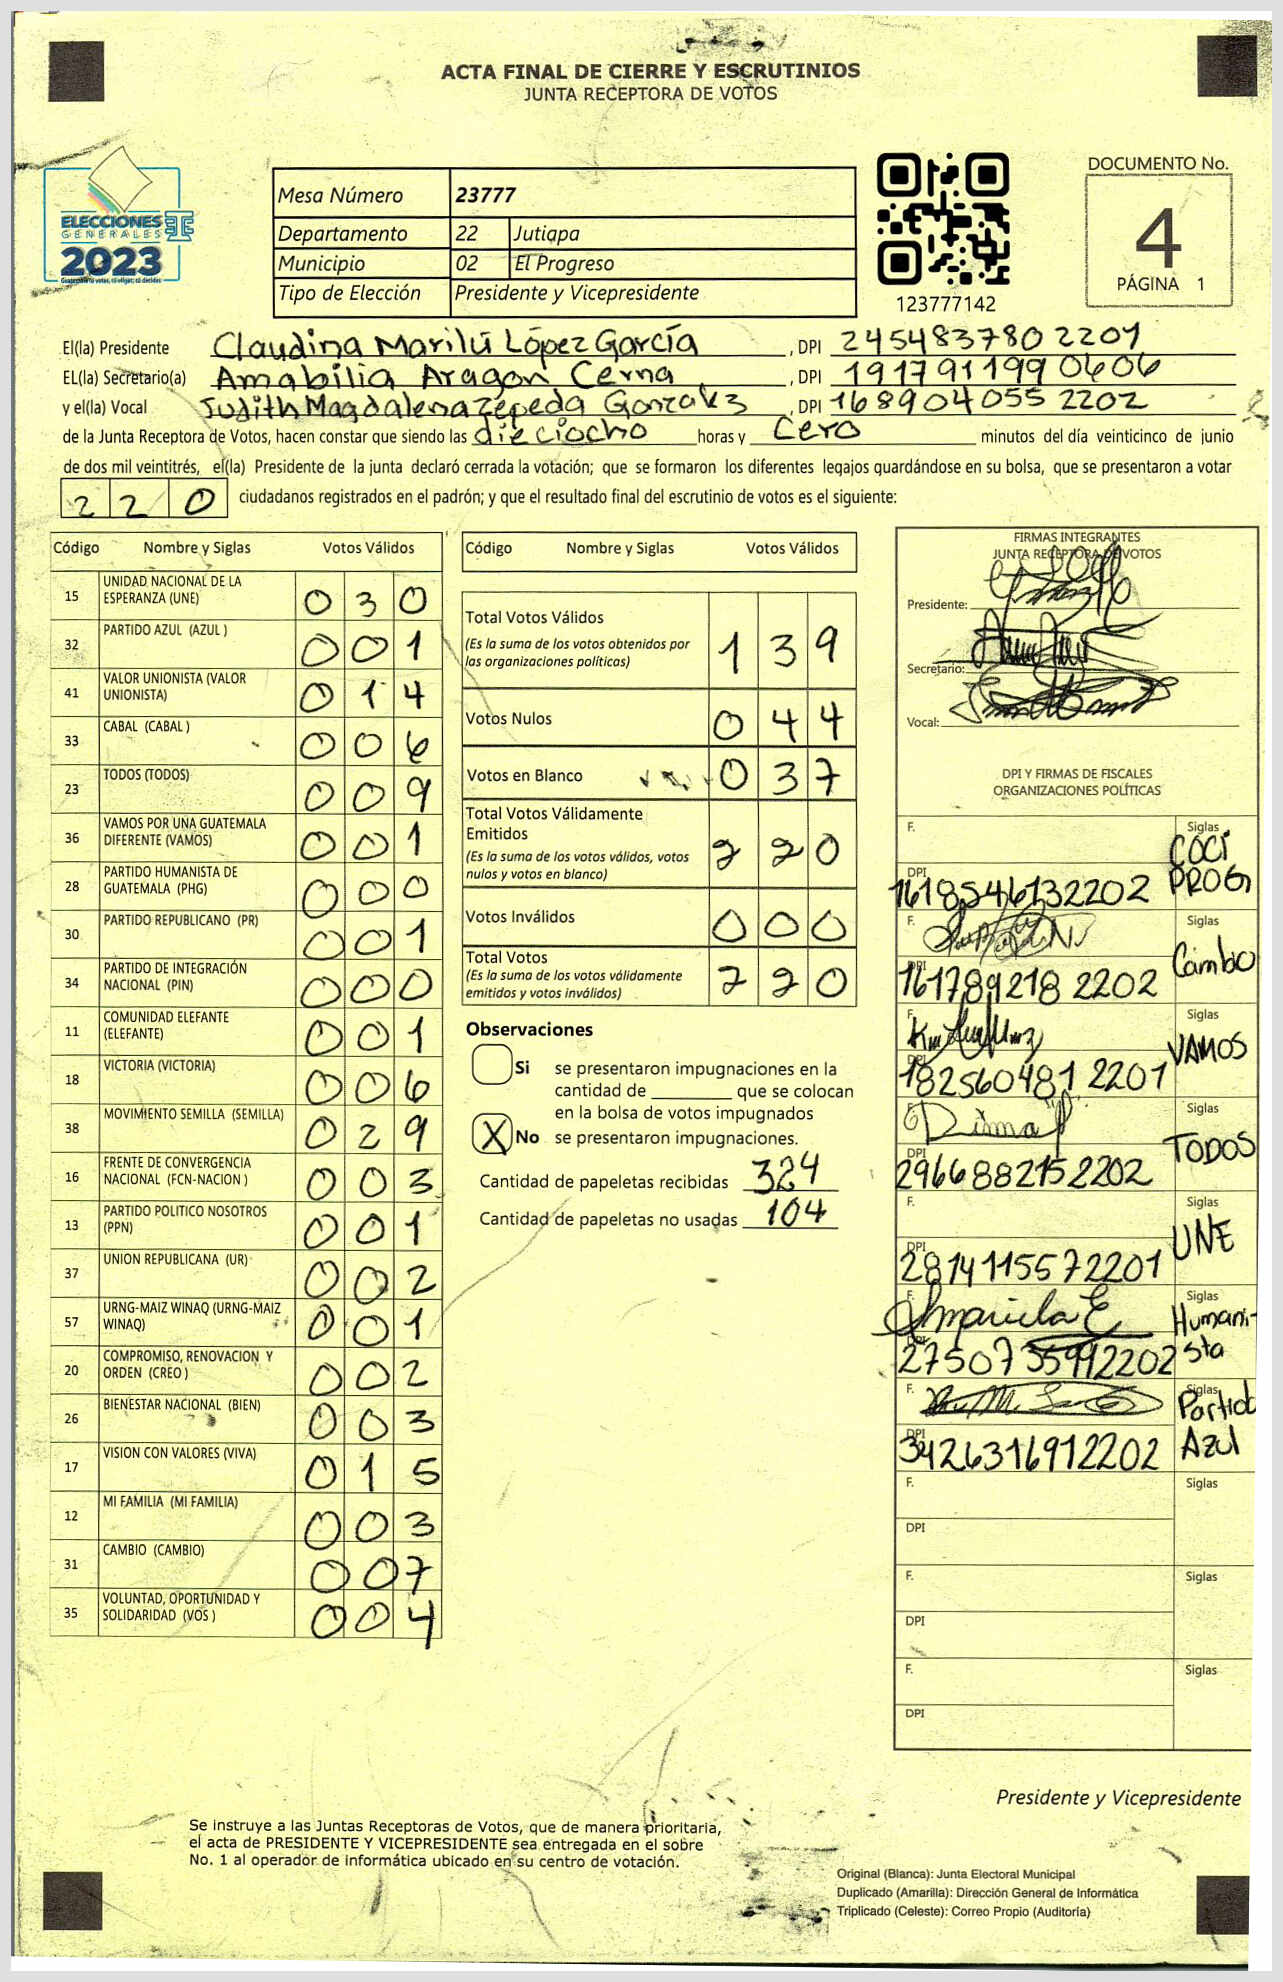 ACTA FINAL DE CIERRE Y ESCRUTINIOS
JUNTA RECEPTORA DE VOTOS
ELECCIONES
GENERALES
2023
Mesa Número 23777
Departamento 22 Jutiapa
Municipio 02 El Progreso
Tipo de Elección Presidente y Vicepresidente
123777142
DOCUMENTO No.
4
PÁGINA 1
El(la) Presidente Claudina Marilú López García , DPI 245483780 2201
EL(la) Secretario(a) Amabilia Aragon Cerna , DPI 191791199 0606
y el(la) Vocal Judith Magdalena Zepeda Gonzalez , DPI 168904055 2202
de la Junta Receptora de Votos, hacen constar que siendo las dieciocho horas y Cero minutos del día veinticinco de junio
de dos mil veintitrés, el(la) Presidente de la junta declaró cerrada la votación; que se formaron los diferentes legajos guardándose en su bolsa, que se presentaron a votar
220 ciudadanos registrados en el padrón; y que el resultado final del escrutinio de votos es el siguiente:
Código Nombre y Siglas Votos Válidos
15 UNIDAD NACIONAL DE LA ESPERANZA (UNE) 030
32 PARTIDO AZUL (AZUL ) 001
41 VALOR UNIONISTA (VALOR UNIONISTA) 014
33 CABAL (CABAL ) 006
23 TODOS (TODOS) 009
36 VAMOS POR UNA GUATEMALA DIFERENTE (VAMOS) 001
28 PARTIDO HUMANISTA DE GUATEMALA (PHG) 000
30 PARTIDO REPUBLICANO (PR) 001
34 PARTIDO DE INTEGRACIÓN NACIONAL (PIN) 000
11 COMUNIDAD ELEFANTE (ELEFANTE) 001
18 VICTORIA (VICTORIA) 006
38 MOVIMIENTO SEMILLA (SEMILLA) 029
16 FRENTE DE CONVERGENCIA NACIONAL (FCN-NACION ) 003
13 PARTIDO POLITICO NOSOTROS (PPN) 001
37 UNION REPUBLICANA (UR) 002
57 URNG-MAIZ WINAQ (URNG-MAIZ WINAQ) 001
20 COMPROMISO, RENOVACION Y ORDEN (CREO ) 002
26 BIENESTAR NACIONAL (BIEN) 003
17 VISION CON VALORES (VIVA) 015
12 MI FAMILIA (MI FAMILIA) 003
31 CAMBIO (CAMBIO) 007
35 VOLUNTAD, OPORTUNIDAD Y SOLIDARIDAD (VOS ) 004
Código Nombre y Siglas Votos Válidos
Total Votos Válidos 139
(Es la suma de los votos obtenidos por
las organizaciones políticas)
Votos Nulos 044
Votos en Blanco 037
Total Votos Válidamente
Emitidos 220
(Es la suma de los votos válidos, votos
nulos y votos en blanco)
Votos Inválidos 000
Total Votos 220
(Es la suma de los votos válidamente
emitidos y votos inválidos)
Observaciones
Si se presentaron impugnaciones en la
cantidad de ________ que se colocan
en la bolsa de votos impugnados
X No se presentaron impugnaciones.
Cantidad de papeletas recibidas 324
Cantidad de papeletas no usadas 104
FIRMAS INTEGRANTES
JUNTA RECEPTORA DE VOTOS
Presidente:
Secretario:
Vocal:
DPI Y FIRMAS DE FISCALES
ORGANIZACIONES POLÍTICAS
F. Siglas COCI PROG
DPI 1618546132202
F. Siglas Cambio
DPI 161789218 2202
F. Siglas VAMOS
DPI 182560481 2201
F. Siglas TODOS
DPI 2966882152202
F. Siglas UNE
DPI 2814115572201
F. Siglas Humanista
DPI 2750735912202
F. Siglas Partido Azul
DPI 3426316912202
F. Siglas
DPI
F. Siglas
DPI
F. Siglas
DPI
Presidente y Vicepresidente
Se instruye a las Juntas Receptoras de Votos, que de manera prioritaria,
el acta de PRESIDENTE Y VICEPRESIDENTE sea entregada en el sobre
No. 1 al operador de informática ubicado en su centro de votación.
Original (Blanca): Junta Electoral Municipal
Duplicado (Amarilla): Dirección General de Informática
Triplicado (Celeste): Correo Propio (Auditoría)